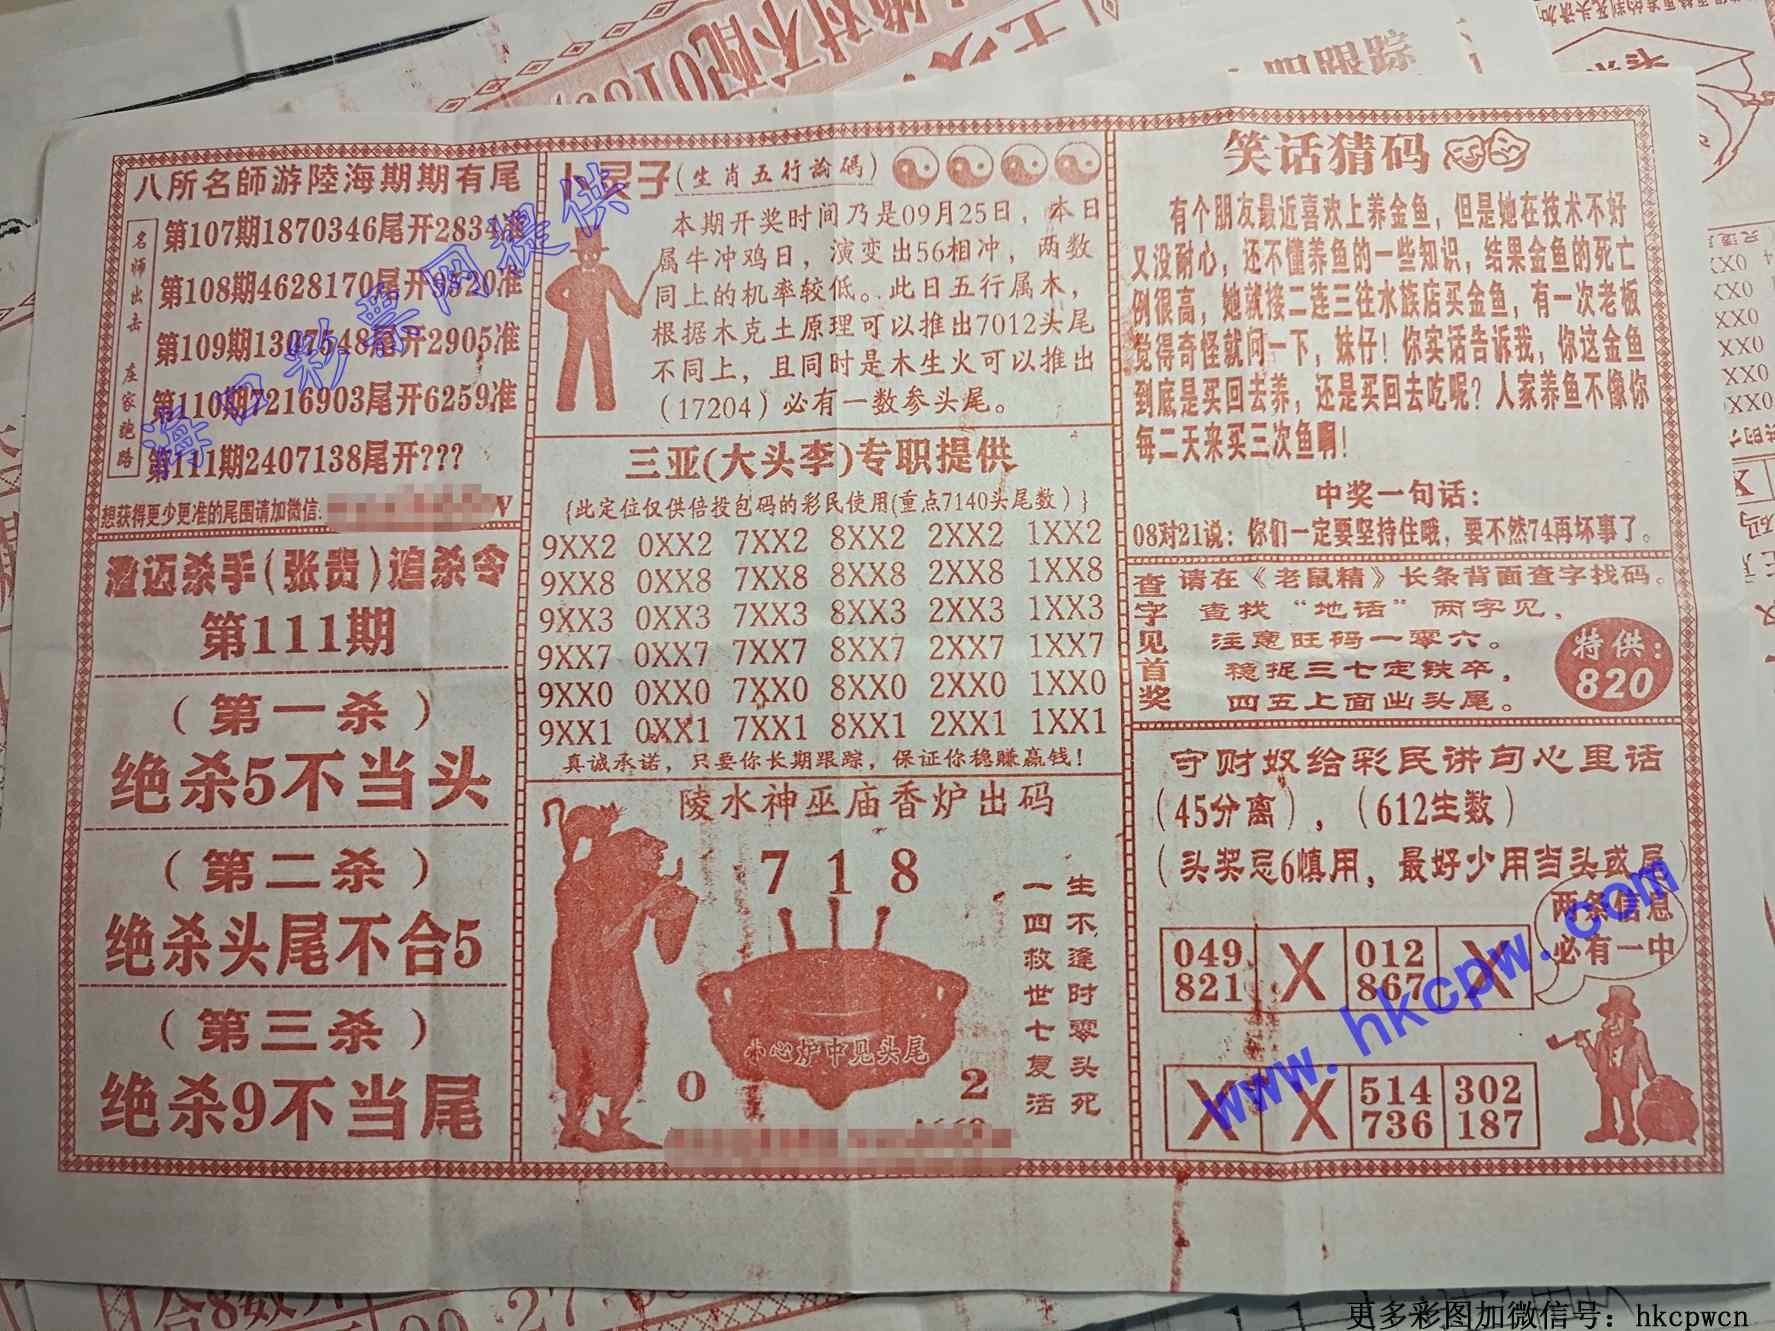 八所名師游陸海期期有尾
名师出击 庄家跑路
第107期1870346尾开2834准
第108期4628170尾开9520准
第109期1307548尾开2905准
第110期7216903尾开6259准
第111期2407138尾开???
想获得更少更准的尾围请加微信:
澄迈杀手(张贵)追杀令
第111期
(第一杀)
绝杀5不当头
(第二杀)
绝杀头尾不合5
(第三杀)
绝杀9不当尾
小灵子(生肖五行論碼)
本期开奖时间乃是09月25日，本日
属牛冲鸡日，演变出56相冲，两数
同上的机率较低。此日五行属木，
根据木克土原理可以推出7012头尾
不同上，且同时是木生火可以推出
(17204)必有一数参头尾。
三亚(大头李)专职提供
{此定位仅供倍投包码的彩民使用(重点7140头尾数)}
9XX2 0XX2 7XX2 8XX2 2XX2 1XX2
9XX8 0XX8 7XX8 8XX8 2XX8 1XX8
9XX3 0XX3 7XX3 8XX3 2XX3 1XX3
9XX7 0XX7 7XX7 8XX7 2XX7 1XX7
9XX0 0XX0 7XX0 8XX0 2XX0 1XX0
9XX1 0XX1 7XX1 8XX1 2XX1 1XX1
真诚承诺，只要你长期跟踪，保证你稳赚赢钱!
陵水神巫庙香炉出码
7 1 8
生不逢时零头死
一四救世七复活
小心炉中见头尾
0 2
笑话猜码
有个朋友最近喜欢上养金鱼，但是她在技术不好
又没耐心，还不懂养鱼的一些知识，结果金鱼的死亡
例很高，她就接二连三往水族店买金鱼，有一次老板
觉得奇怪就问一下，妹仔！你实话告诉我，你这金鱼
到底是买回去养，还是买回去吃呢？人家养鱼不像你
每二天来买三次鱼啊！
中奖一句话:
08对21说：你们一定要坚持住哦，要不然74再坏事了。
查字见首奖
请在《老鼠精》长条背面查字找码。
查找“地话”两字见，
注意旺码一零六。
稳捉三七定铁卒，
四五上面出头尾。
特供:
820
守财奴给彩民讲句心里话
(45分离)，(612生数)
(头奖忌6慎用，最好少用当头或尾)
两条信息
必有一中
049 X 012 X
821 867
X X 514 302
736 187
海口彩票网提供
www.hkcpw.com
更多彩图加微信号：hkcpwcn